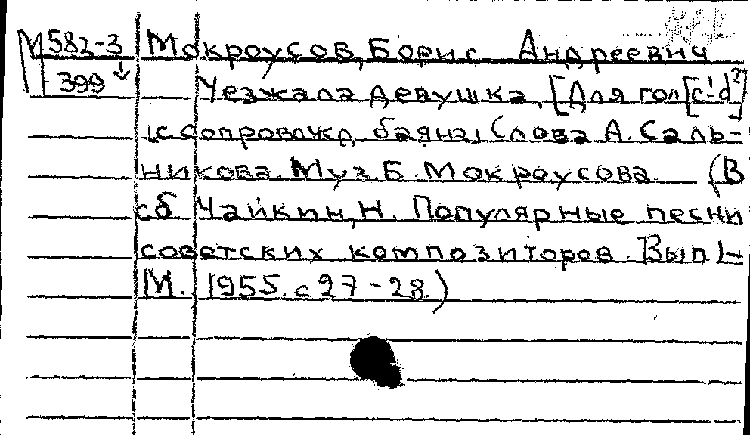 М582-3 Мокроусов, Борис Андреевич
399 Уезжала девушка. [Для гол [c¹-d²]
с сопровожд. баяна, Слова А. Саль-
никова. Муз. Б. Мокроусова (В
сб. Чайкин, Н. Популярные песни
советских композиторов. Вып 1-
М. 1955. с 27-28.)